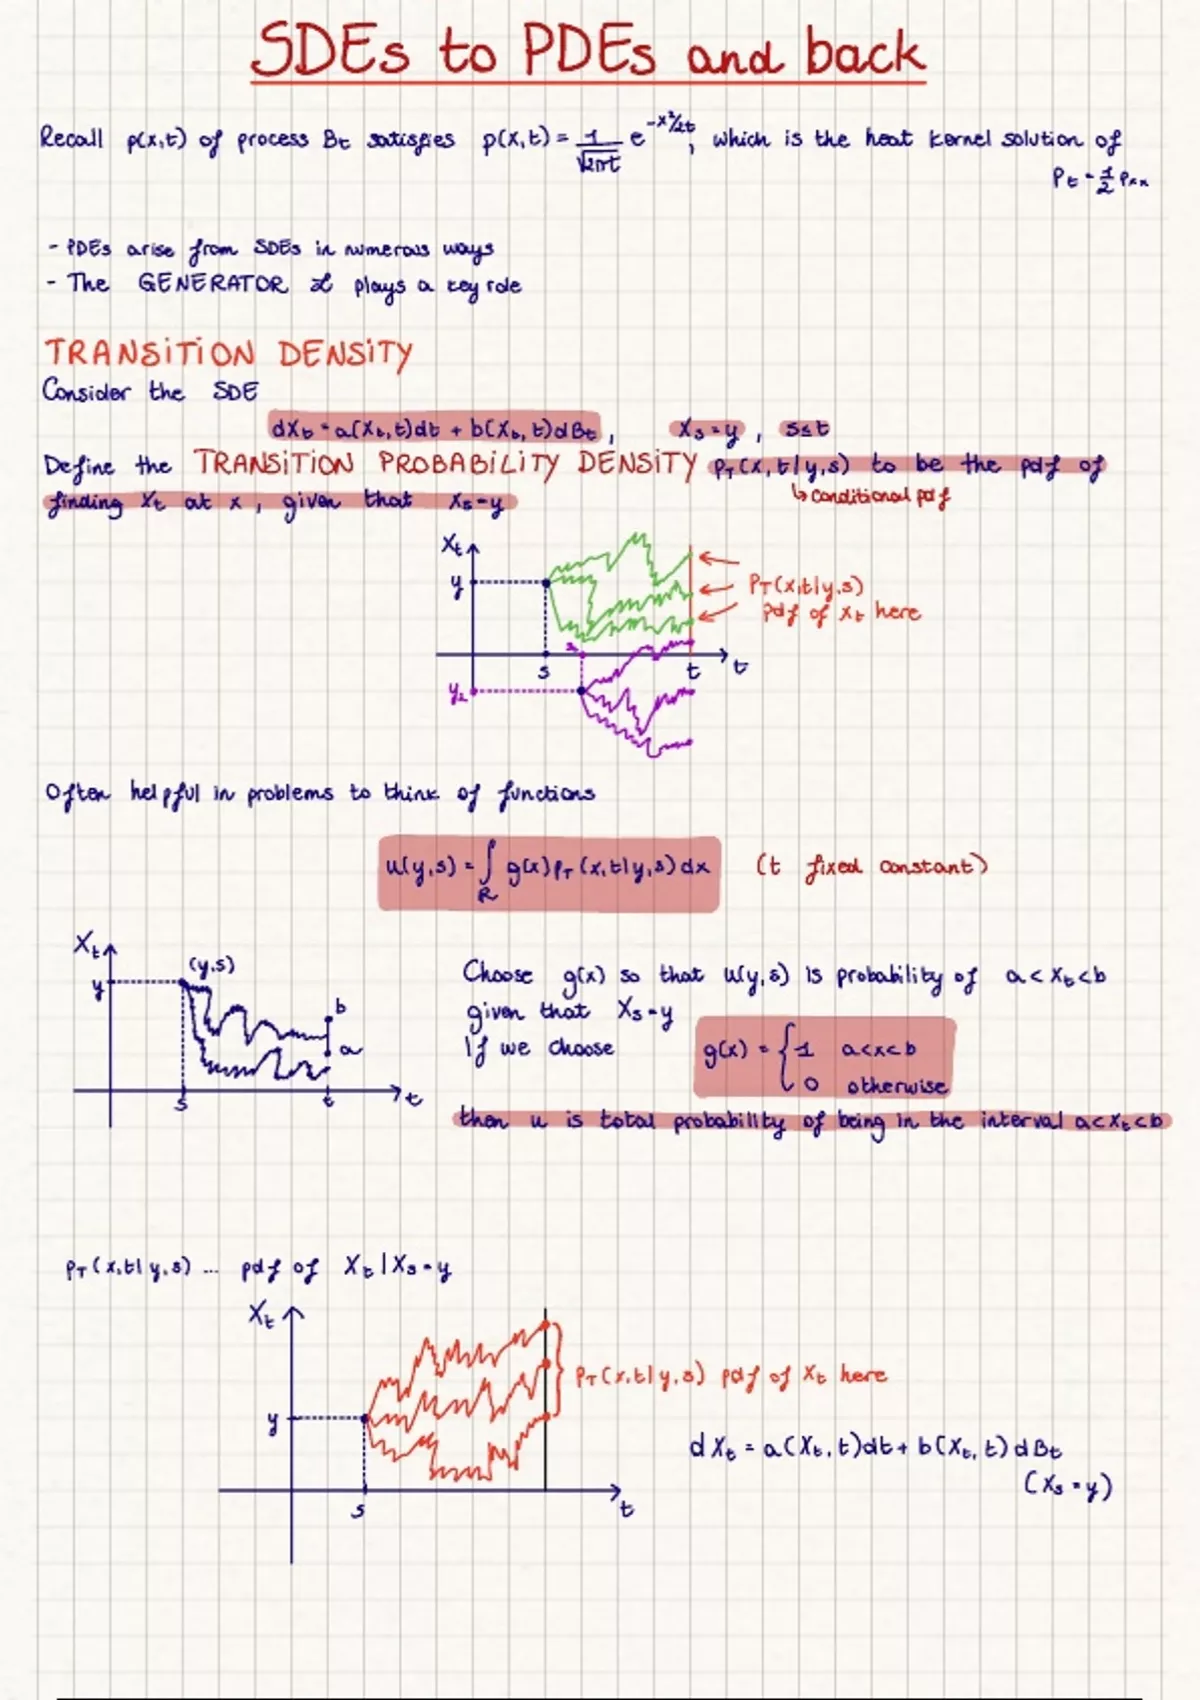 SDEs to PDEs and back
Recall p(x,t) of process Bt satisfies p(x,t) = 1/√2πt e^-x²/2t, which is the heat kernel solution of
Pt = 1/2 Pxx
- PDEs arise from SDEs in numerous ways
- The GENERATOR ℒ plays a key role
TRANSITION DENSITY
Consider the SDE
dXt = a(Xt,t)dt + b(Xt,t)dBt, Xs=y, s≤t
Define the TRANSITION PROBABILITY DENSITY PT(x,t|y,s) to be the pdf of
↳ conditional pdf
finding Xt at x, given that Xs=y
Xt
y
PT(x,t|y,s)
pdf of Xt here
s
t
t
y2
Often helpful in problems to think of functions
u(y,s) = ∫R g(x)PT(x,t|y,s)dx (t fixed constant)
Xt
(y,s)
y
b
a
s
t
t
Choose g(x) so that u(y,s) is probability of a<Xt<b
given that Xs=y
If we choose g(x) = { 1 a<x<b
0 otherwise
then u is total probability of being in the interval a<Xt<b
PT(x,t|y,s) ... pdf of Xt|Xs=y
Xt
PT(x,t|y,s) pdf of Xt here
y
s
t
dXt = a(Xt,t)dt + b(Xt,t)dBt
(Xs=y)